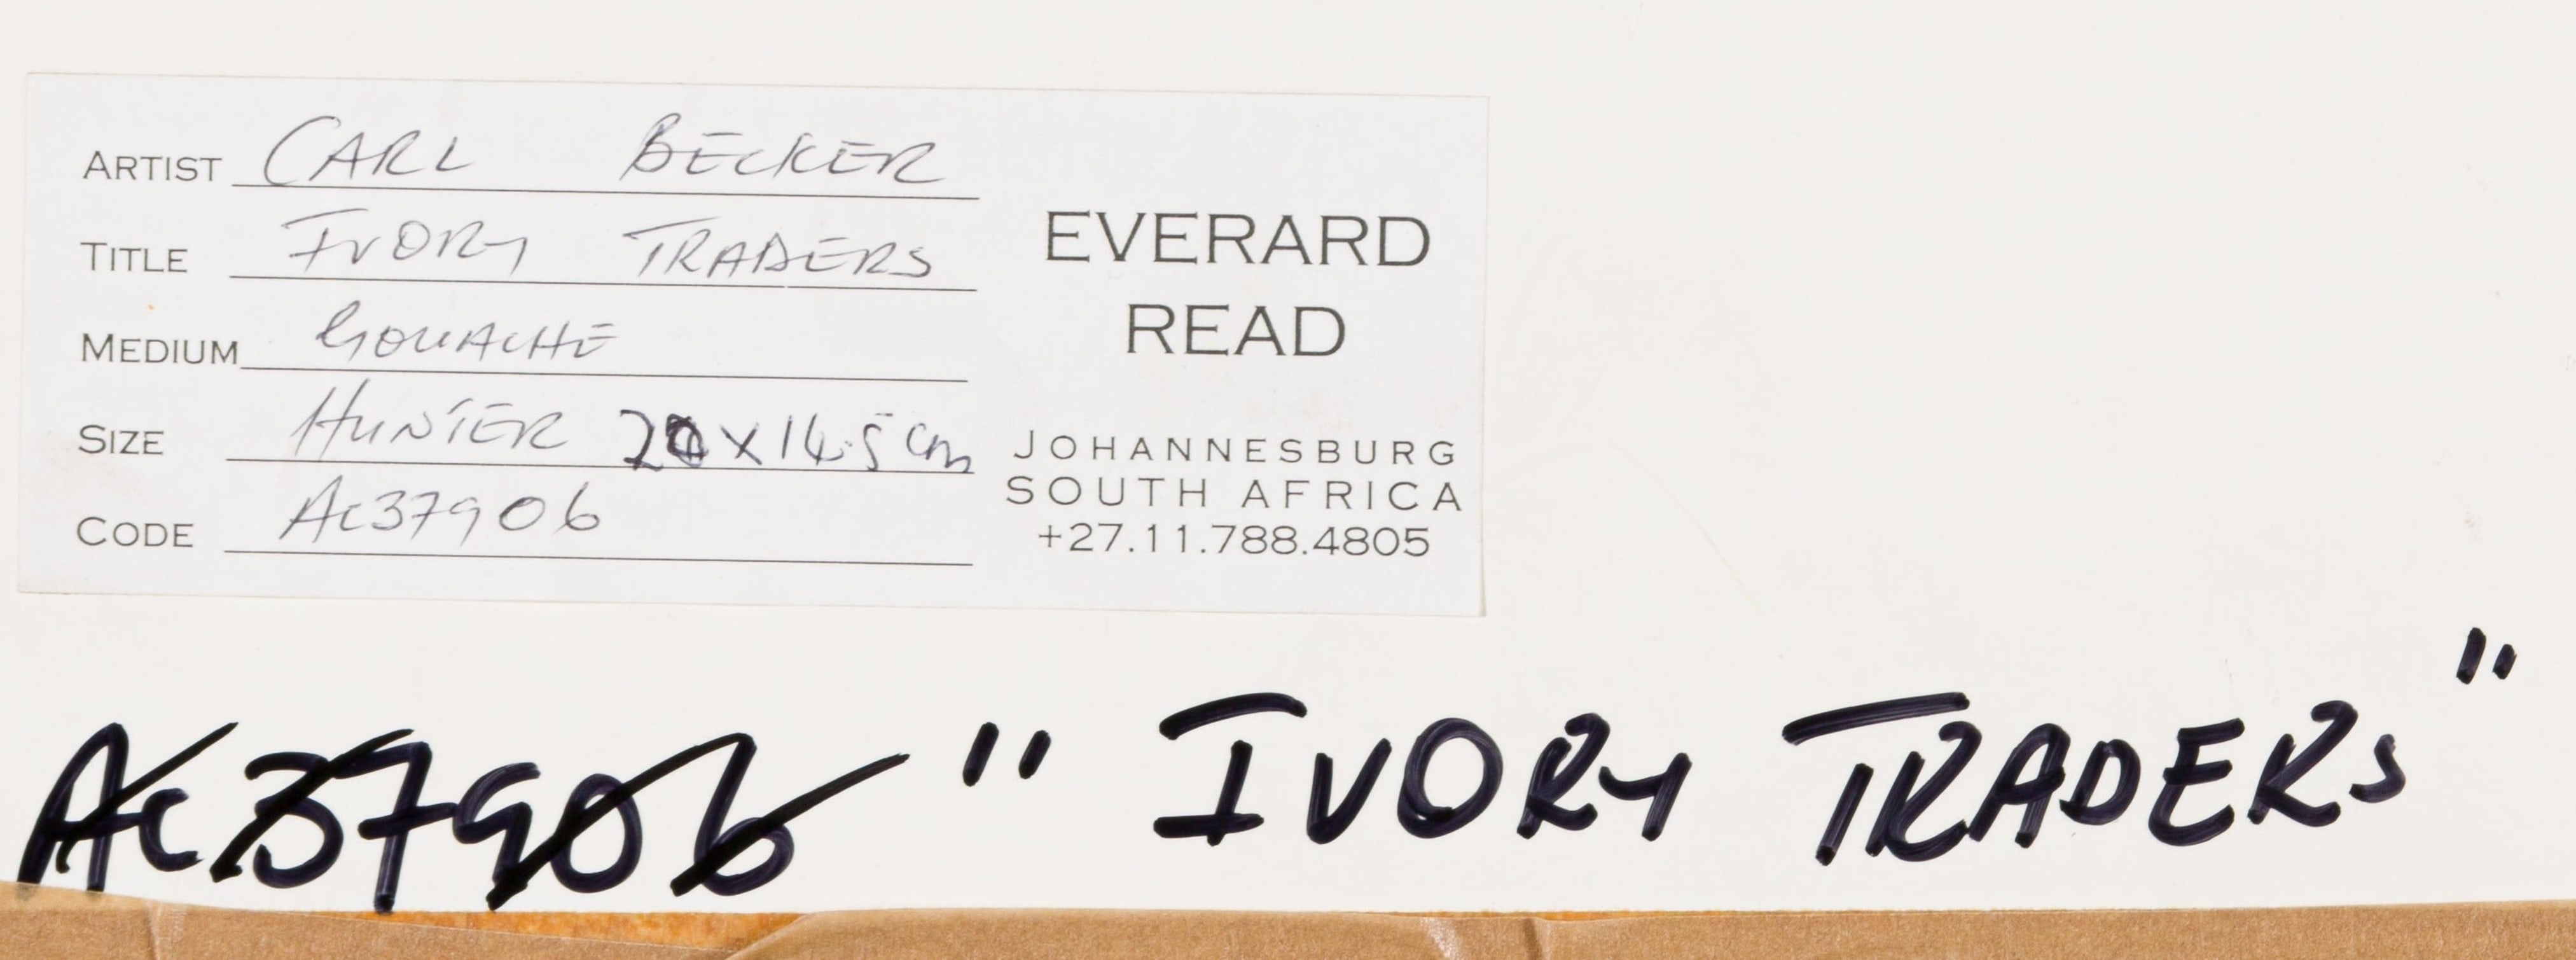 ARTIST CARL BECKER
TITLE IVORY TRADERS
MEDIUM GOUACHE
SIZE HUNTER x 14.5 cm
CODE AC37906
EVERARD
READ
JOHANNESBURG
SOUTH AFRICA
+27.11.788.4805
AC37906 "IVORY TRADERS"